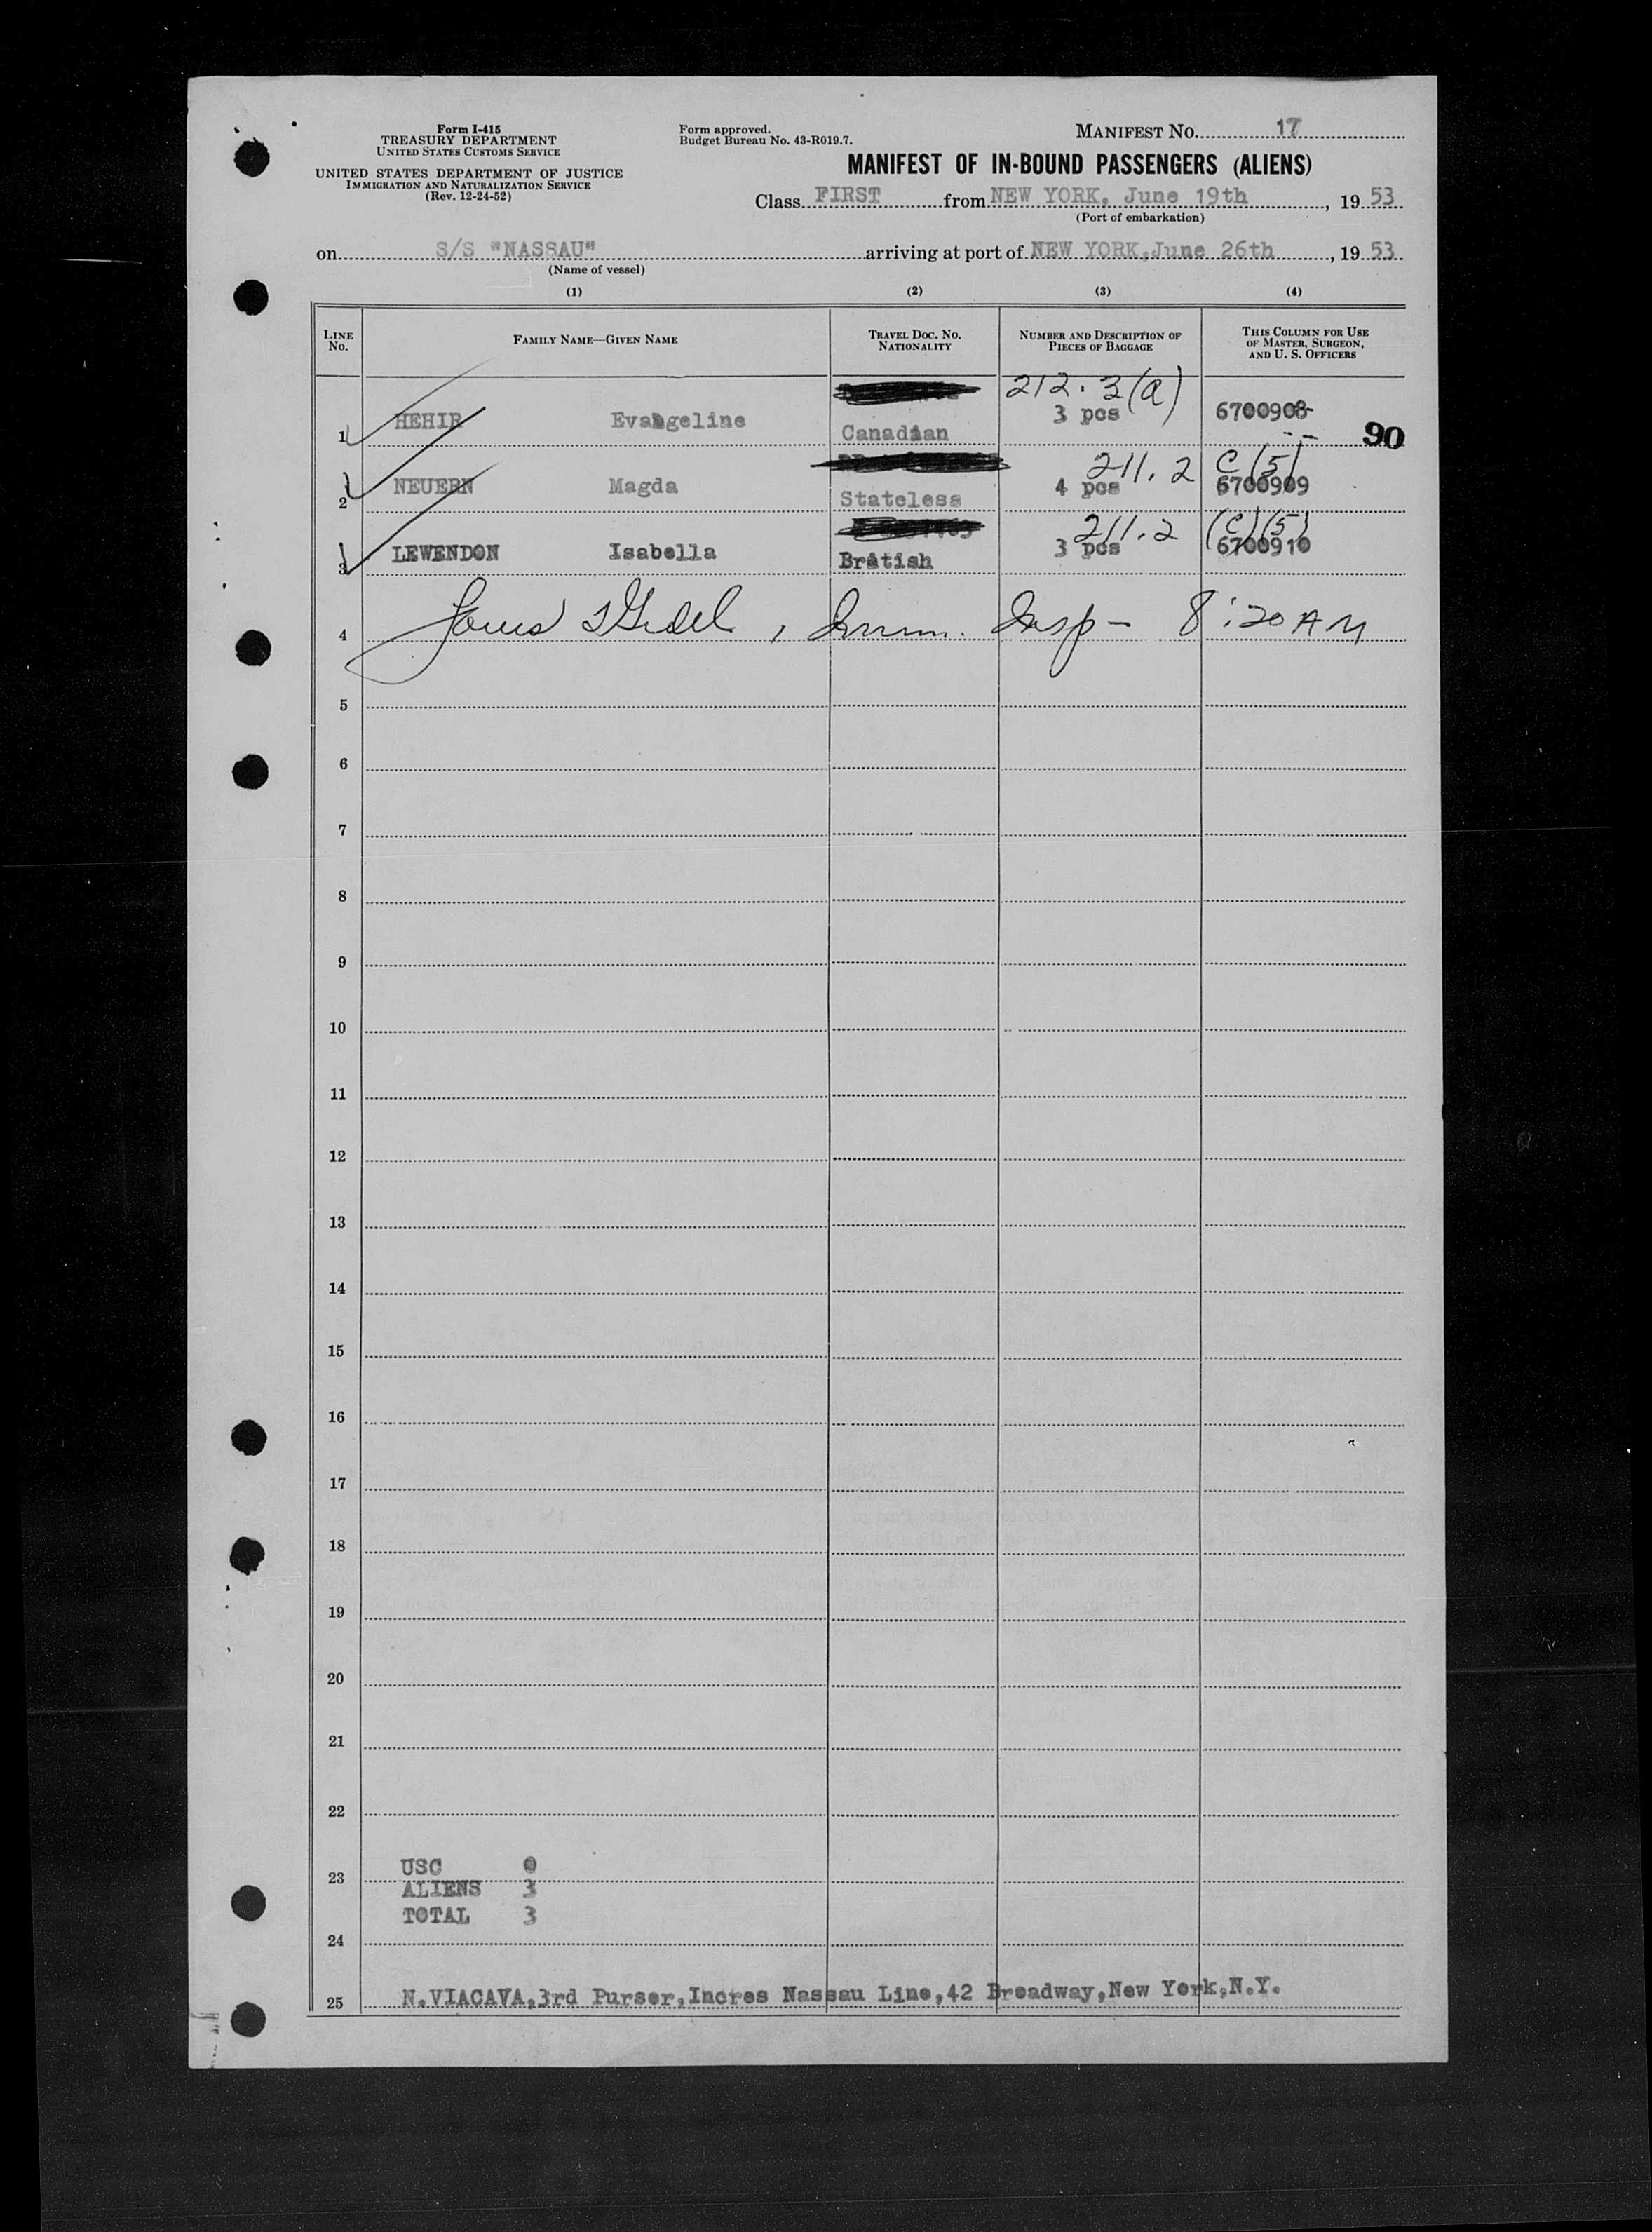 Form I-415
TREASURY DEPARTMENT
UNITED STATES CUSTOMS SERVICE
UNITED STATES DEPARTMENT OF JUSTICE
IMMIGRATION AND NATURALIZATION SERVICE
(Rev. 12-24-52)
Form approved.
Budget Bureau No. 43-R019.7.
MANIFEST NO. 17
MANIFEST OF IN-BOUND PASSENGERS (ALIENS)
Class FIRST from NEW YORK, June 19th, 19 53
(Port of embarkation)
on S/S "NASSAU" arriving at port of NEW YORK, June 26th, 19 53
(Name of vessel)
(1) (2) (3) (4)
LINE No. FAMILY NAME—GIVEN NAME TRAVEL DOC. NO. NATIONALITY NUMBER AND DESCRIPTION OF PIECES OF BAGGAGE THIS COLUMN FOR USE OF MASTER, SURGEON, AND U. S. OFFICERS
212.3(a)
1 HEHIR Evangeline Canadian 3 pcs 6700908
90
211.2 C (5)
2 NEUERN Magda Stateless 4 pcs 6700909
211.2 (C)(5)
3 LEWENDON Isabella British 3 pcs 6700910
4 Imm. Insp - 8:20 AM
5
6
7
8
9
10
11
12
13
14
15
16
17
18
19
20
21
22
USC 0
23
ALIENS 3
TOTAL 3
24
25 N.VIACAVA,3rd Purser,Incres Nassau Line,42 Broadway,New York,N.Y.